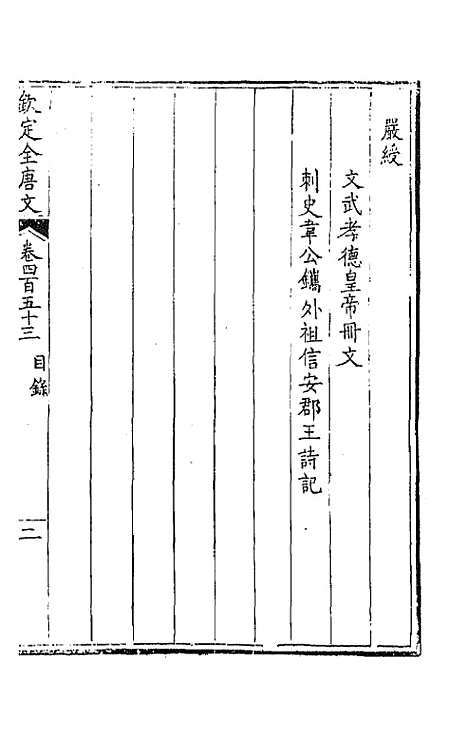 嚴綬
文武孝德皇帝冊文
刺史韋公鑴外祖信安郡王詩記
欽定全唐文
卷四百五十三
目錄
二